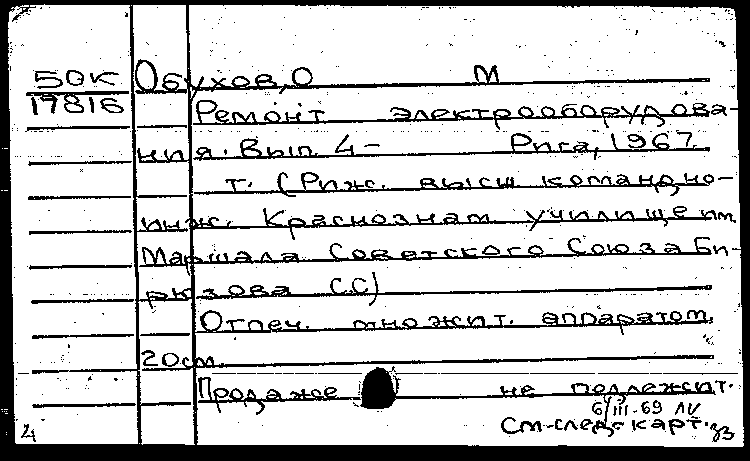 50К Обухов, О М
17816 Ремонт электрооборудова-
ния. Вып. 4- Рига, 1967.
т. (Риж. высш командно-
инж. Краснознам училище им.
Маршала Советского Союза Би-
рюзова С.С)
Отпеч. множит. аппаратом.
20см.
Продаже не подлежит.
6/III-69
См-след-карт.